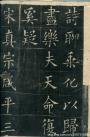 詩聊乘化以歸
盡樂夫天命復
奚疑
宋真宗咸平三